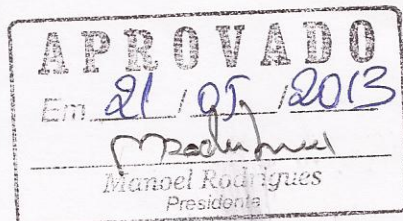 APROVADO
Em 21 / 05 / 2013
Manoel Rodrigues
Presidente